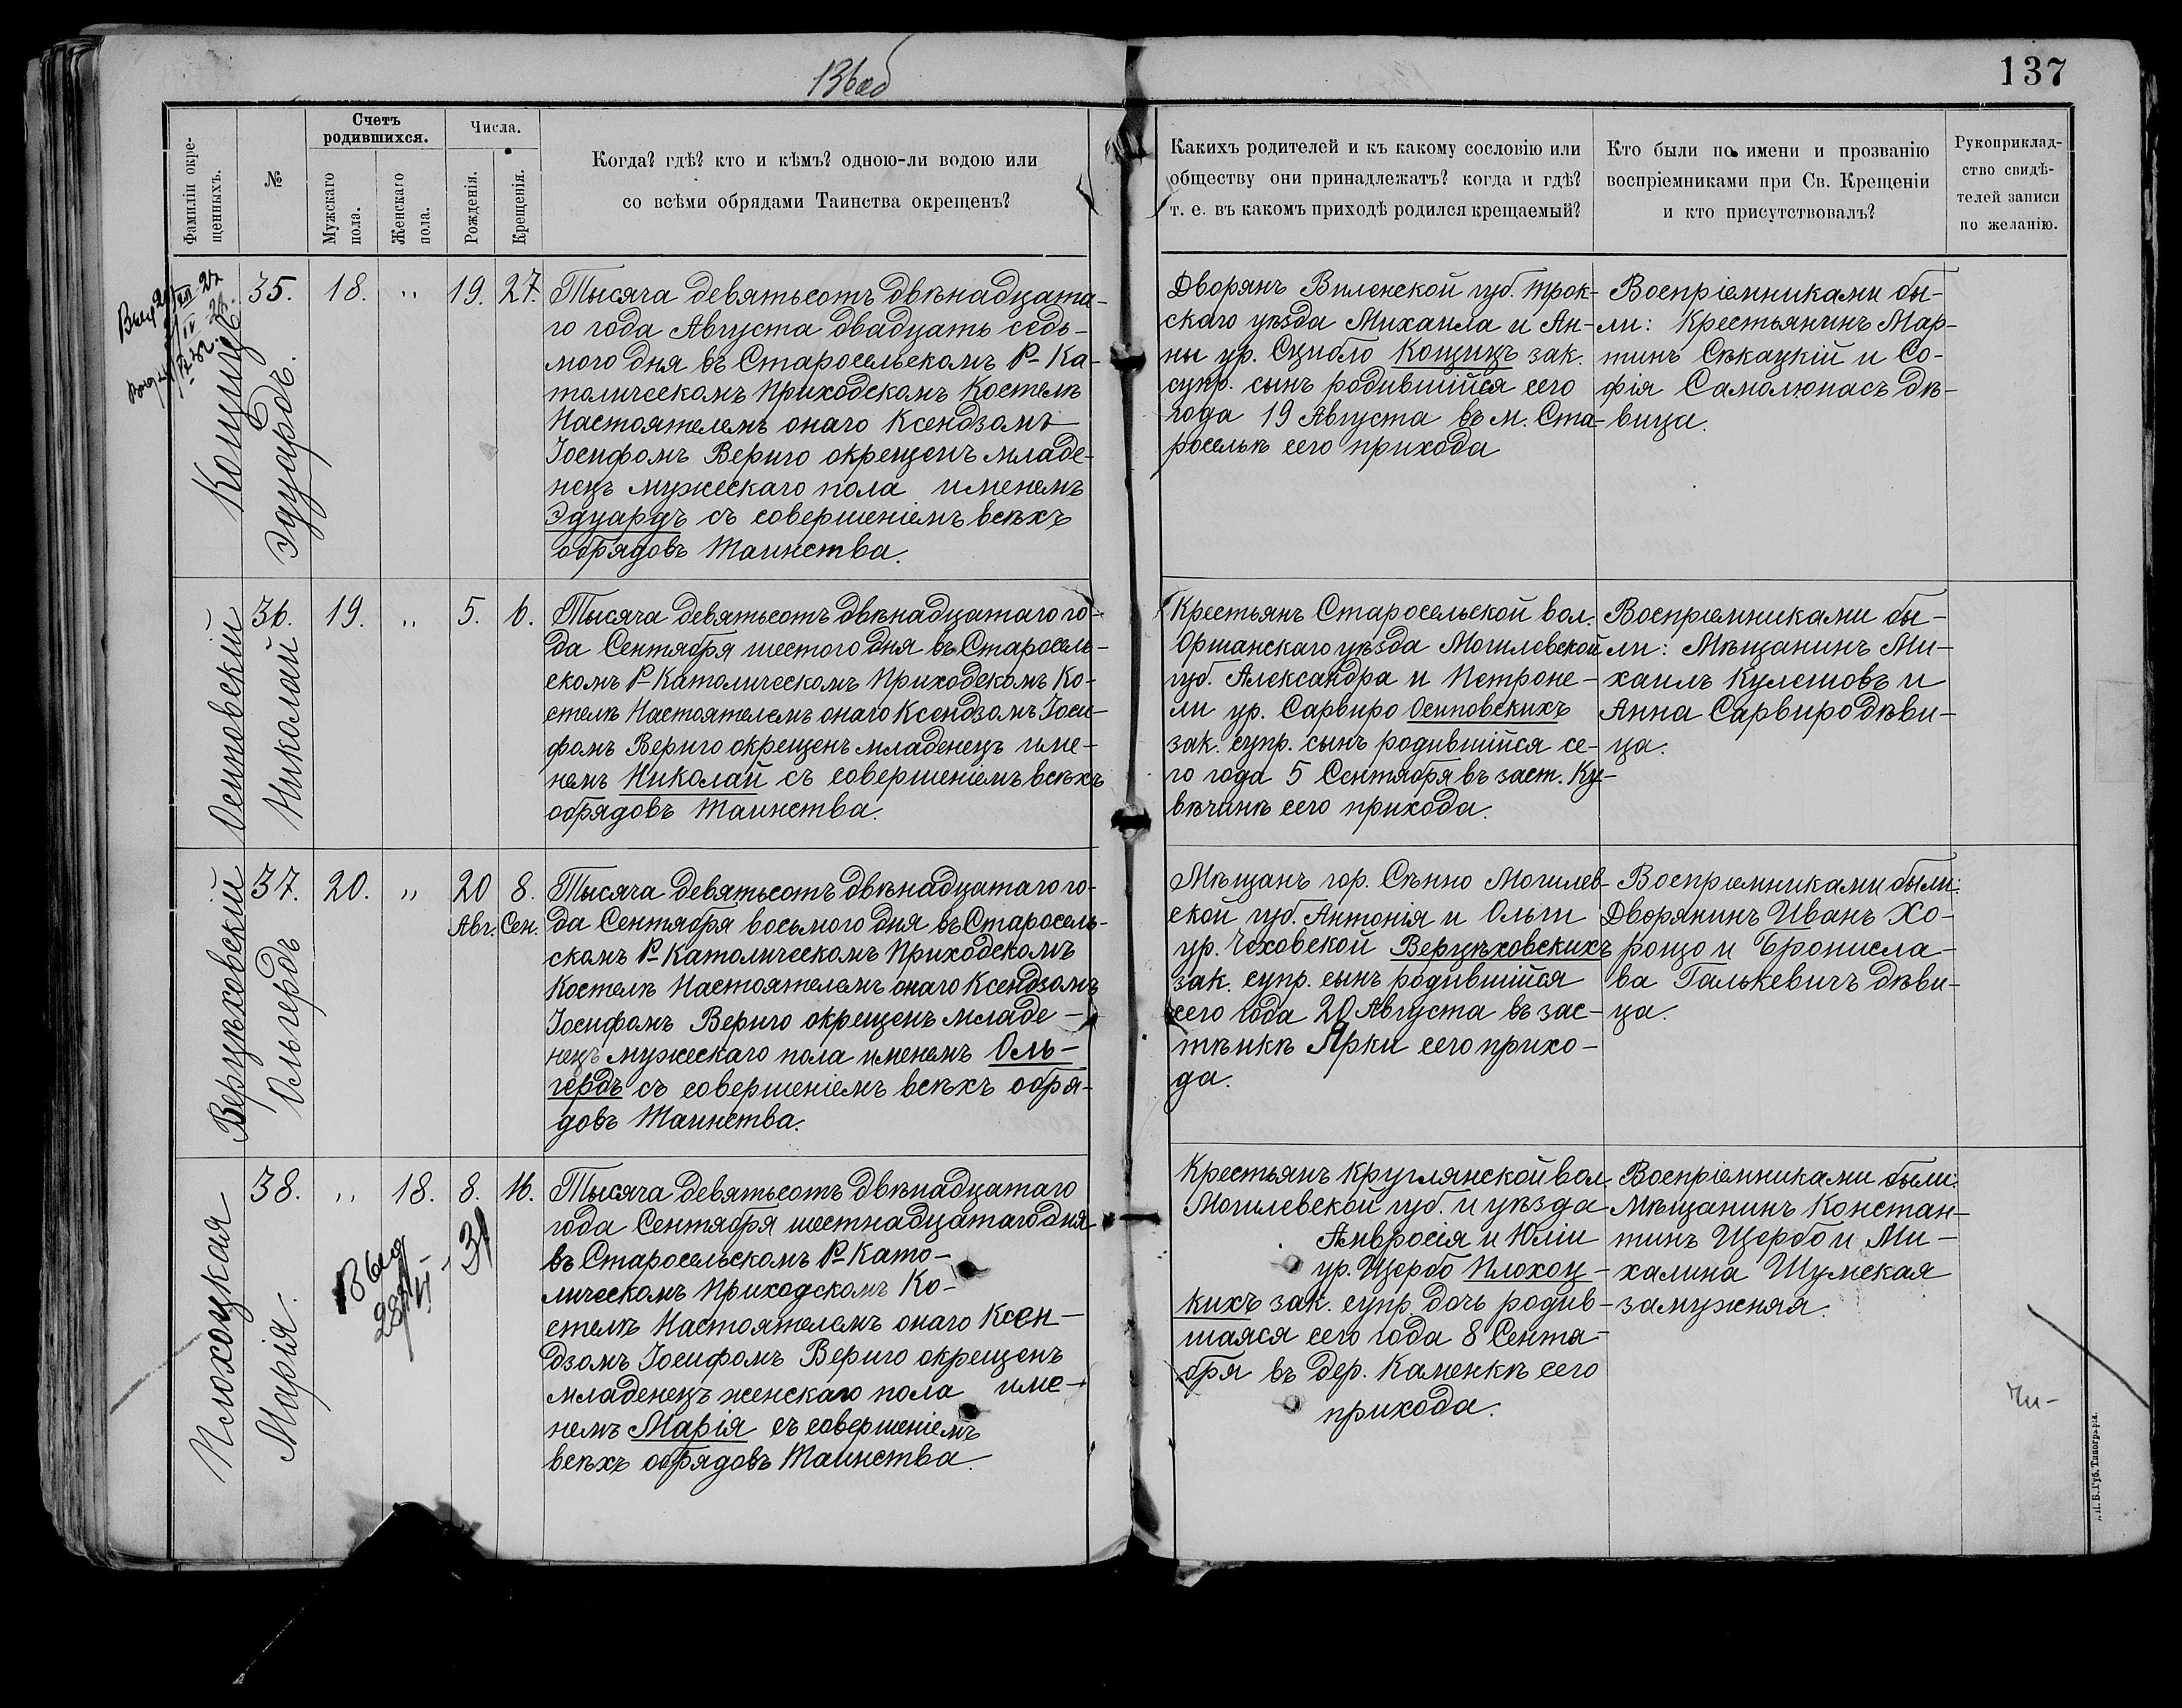 136об
137
Фамиліи окре-
щенныхъ.
№
Счетъ
родившихся.
Мужскаго
пола.
Женскаго
пола.
Числа.
Рожденія.
Крещенія.
Когда? гдѣ? кто и кѣмъ? одною-ли водою или
со всѣми обрядами Таинства окрещенъ?
Какихъ родителей и къ какому сословію или
обществу они принадлежатъ? когда и гдѣ?
т. е. въ какомъ приходѣ родился крещаемый?
Кто были по имени и прозванію
воспріемниками при Св. Крещеніи
и кто присутствовалъ?
Рукоприклад-
ство свидѣ-
телей записи
по желанію.
Кощицъ
Эдуардъ.
35. 18. „ 19. 27.
Тысяча девятьсотъ двѣнадцата-
го года Августа двадцать седь-
мого дня въ Старосельскомъ Р-Ка-
толическомъ Приходскомъ Костелѣ
Настоятелемъ онаго Ксендзомъ
Іосифомъ Вериго окрещенъ младе-
нецъ мужескаго пола именемъ
Эдуардъ съ совершеніемъ всѣхъ
обрядовъ Таинства.
Дворянъ Виленской губ. Трок-
скаго уѣзда Михаила и Ан-
ны ур. Сцибло Кощицъ зак.
супр. сынъ родившійся сего
года 19 Августа въ м. Ста-
росельѣ сего прихода
Воспріемниками бы-
ли: Крестьянинъ Мар-
тинъ Сѣкацкій и Со-
фія Самолюпасъ дѣ-
вица.
Осиповскій
Николай
36. 19. „ 5. 6.
Тысяча девятьсотъ двѣнадцатаго го-
да Сентября шестого дня въ Старосель-
скомъ Р-Католическомъ Приходскомъ Ко-
стелѣ Настоятелемъ онаго Ксендзомъ Іоси-
фомъ Вериго окрещенъ младенецъ име-
немъ Николай съ совершеніемъ всѣхъ
обрядовъ Таинства.
Крестьянъ Старосельской вол.
Оршанскаго уѣзда Могилевской
губ. Александра и Петроне-
ли ур. Сарвиро Осиповскихъ
зак. супр. сынъ родившійся се-
го года 5 Сентября въ заст. Ку-
вѣчинѣ сего прихода.
Воспріемниками бы-
ли: Мѣщанинъ Ми-
хаилъ Кулешовъ и
Анна Сарвиро дѣви-
ца.
Верцѣховскій
Ольгердъ
37. 20. „ 20 8.
Авг. Сен.
Тысяча девятьсотъ двѣнадцатаго го-
да Сентября восьмого дня въ Старосель-
скомъ Р-Католическомъ Приходскомъ
Костелѣ Настоятелемъ онаго Ксендзомъ
Іосифомъ Вериго окрещенъ младе-
нецъ мужескаго пола именемъ Оль-
гердъ съ совершеніемъ всѣхъ обря-
довъ Таинства.
Мѣщанъ гор. Сѣнно Могилев-
ской губ. Антонія и Ольги
ур. Чеховской Верцѣховскихъ
зак. супр. сынъ родившійся
сего года 20 Августа въ зас-
тѣнкѣ Ярки сего прихо-
да.
Воспріемниками были:
Дворянинъ Иванъ Хо-
рощо и Бронисла-
ва Галькевичъ дѣви-
ца.
Плохоцкая
Марія.
38. „ 18. 8. 16.
Выд
31
Тысяча девятьсотъ двѣнадцатаго
года Сентября шестнадцатаго дня
въ Старосельскомъ Р-Като-
лическомъ Приходскомъ Ко-
стелѣ Настоятелемъ онаго Ксен-
дзомъ Іосифомъ Вериго окрещенъ
младенецъ женскаго пола име-
немъ Марія съ совершеніемъ
всѣхъ обрядовъ Таинства.
Крестьянъ Круглянской вол.
Могилевской губ. и уѣзда
Амвросія и Юліи
ур. Щербо Плохоц-
кихъ зак. супр. дочь родив-
шаяся сего года 8 Сентя-
бря въ дер. Каменкѣ сего
прихода.
Воспріемниками были:
Мѣщанинъ Констан-
тинъ Щербо и Ми-
халина Шумская
замужняя.